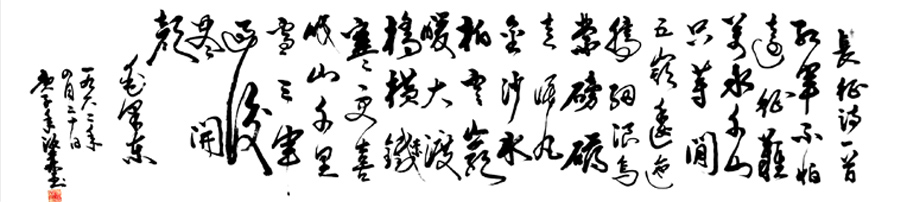 長征詩一首
紅軍不怕
遠征難
萬水千山
只等閒
五嶺逶迤
騰細浪烏
蒙磅礴
走泥丸
金沙水
拍雲崖
暖大渡
橋横鐵
寒更喜
岷山千里
雪三軍
過後
尽開
顏
毛澤東
一九六二年
四月二十日